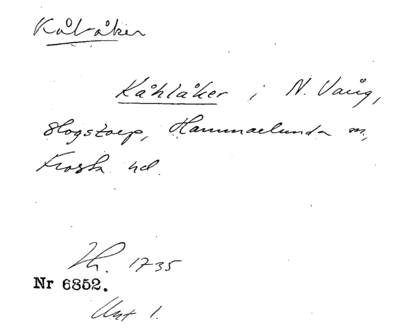 Kålåker
Kåhlåker i N. Vång,
Slogstorp, Hammarlunda sn,
Frosta hd.
Lh. 1735
Nr 6852.
Akt 1.